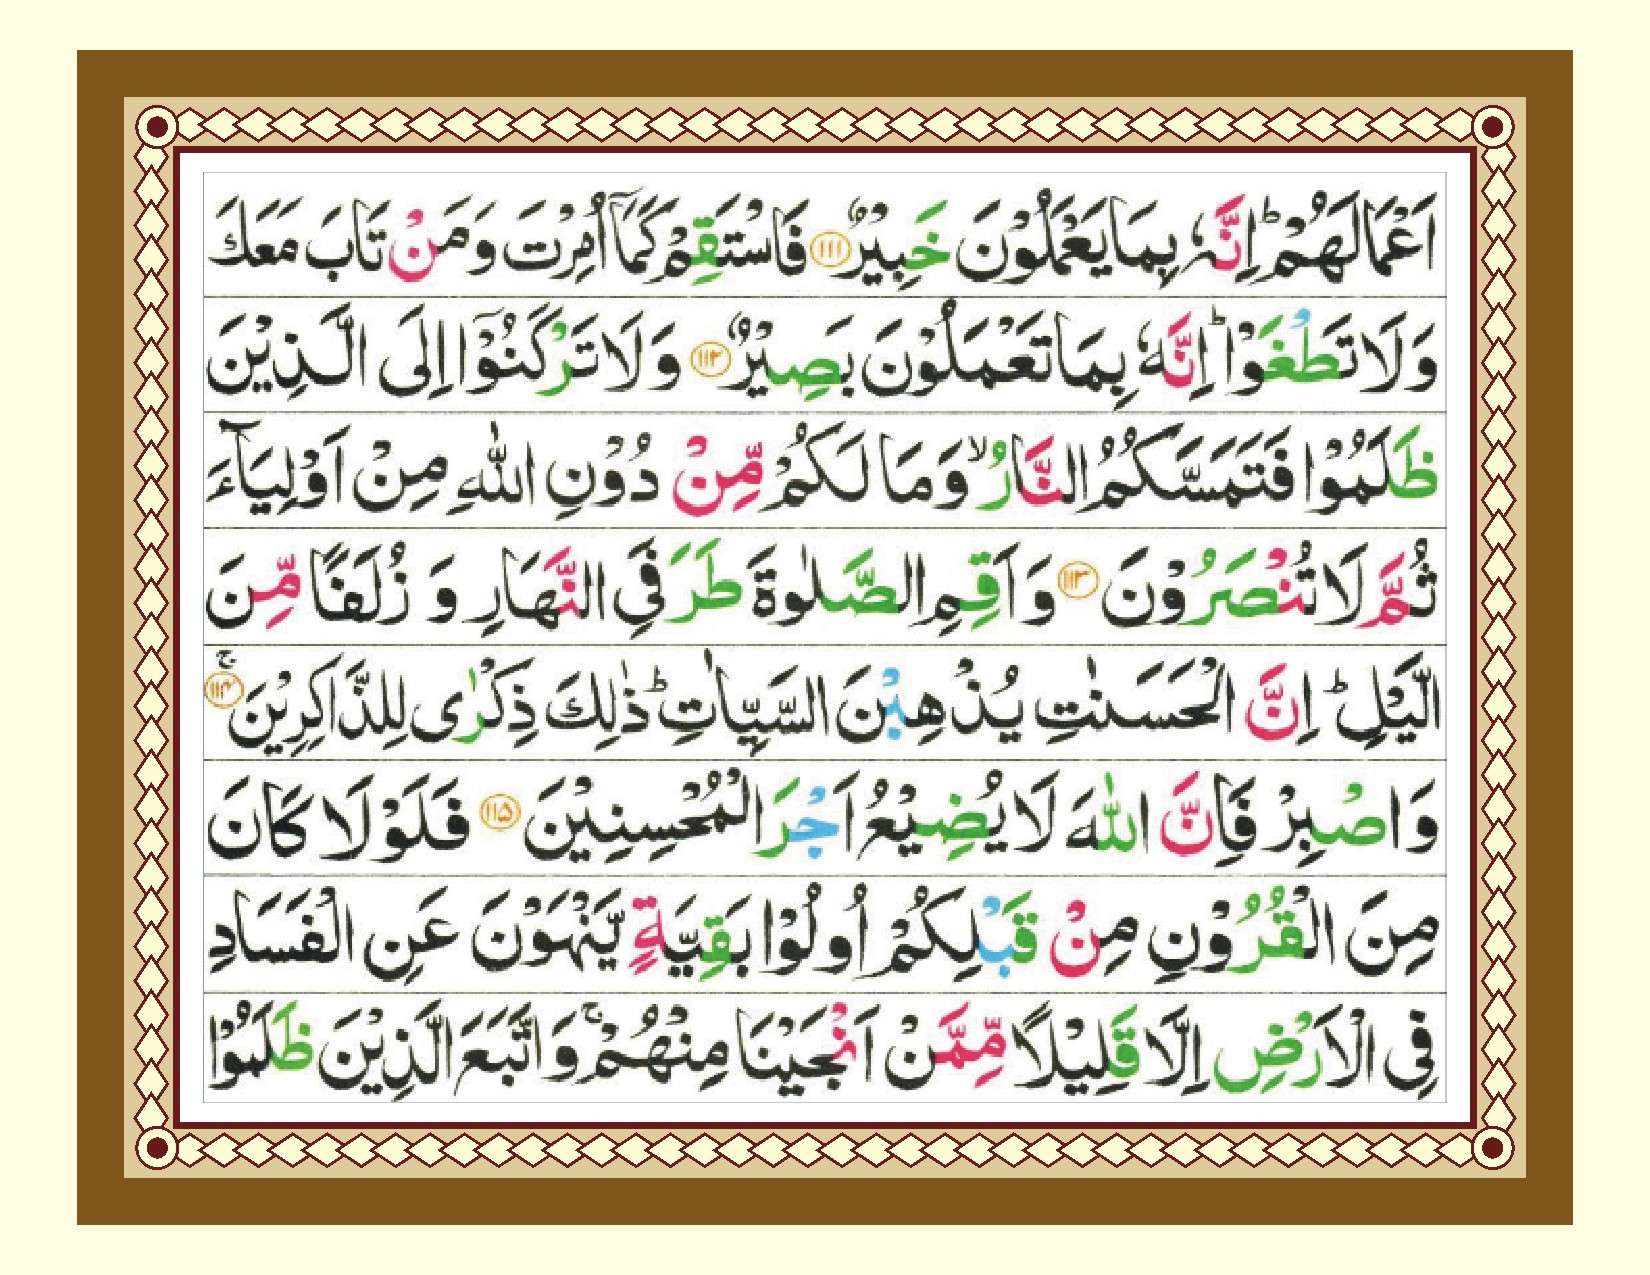 اَعْمَالَهُمْ ؕ اِنَّهٗ بِمَا يَعْمَلُوْنَ خَبِيْرٌ ﴿۱۱۱﴾ فَاسْتَقِمْ كَمَاۤ اُمِرْتَ وَمَنْ تَابَ مَعَكَ
وَلَا تَطْغَوْا ؕ اِنَّهٗ بِمَا تَعْمَلُوْنَ بَصِيْرٌ ﴿۱۱۲﴾ وَلَا تَرْكَنُوْۤا اِلَى الَّذِيْنَ
ظَلَمُوْا فَتَمَسَّكُمُ النَّارُ ۙ وَمَا لَكُمْ مِّنْ دُوْنِ اللّٰهِ مِنْ اَوْلِيَآءَ
ثُمَّ لَا تُنْصَرُوْنَ ﴿۱۱۳﴾ وَاَقِمِ الصَّلٰوةَ طَرَفَيِ النَّهَارِ وَ زُلَفًا مِّنَ
الَّيْلِ ؕ اِنَّ الْحَسَنٰتِ يُذْهِبْنَ السَّيِّاٰتِ ؕ ذٰلِكَ ذِكْرٰى لِلذَّاكِرِيْنَ ﴿۱۱۴﴾ ۚ
وَاصْبِرْ فَاِنَّ اللّٰهَ لَا يُضِيْعُ اَجْرَ الْمُحْسِنِيْنَ ﴿۱۱۵﴾ فَلَوْلَا كَانَ
مِنَ الْقُرُوْنِ مِنْ قَبْلِكُمْ اُولُوْا بَقِيَّةٍ يَّنْهَوْنَ عَنِ الْفَسَادِ
فِى الْاَرْضِ اِلَّا قَلِيْلًا مِّمَّنْ اَنْجَيْنَا مِنْهُمْ ۚ وَاتَّبَعَ الَّذِيْنَ ظَلَمُوْا